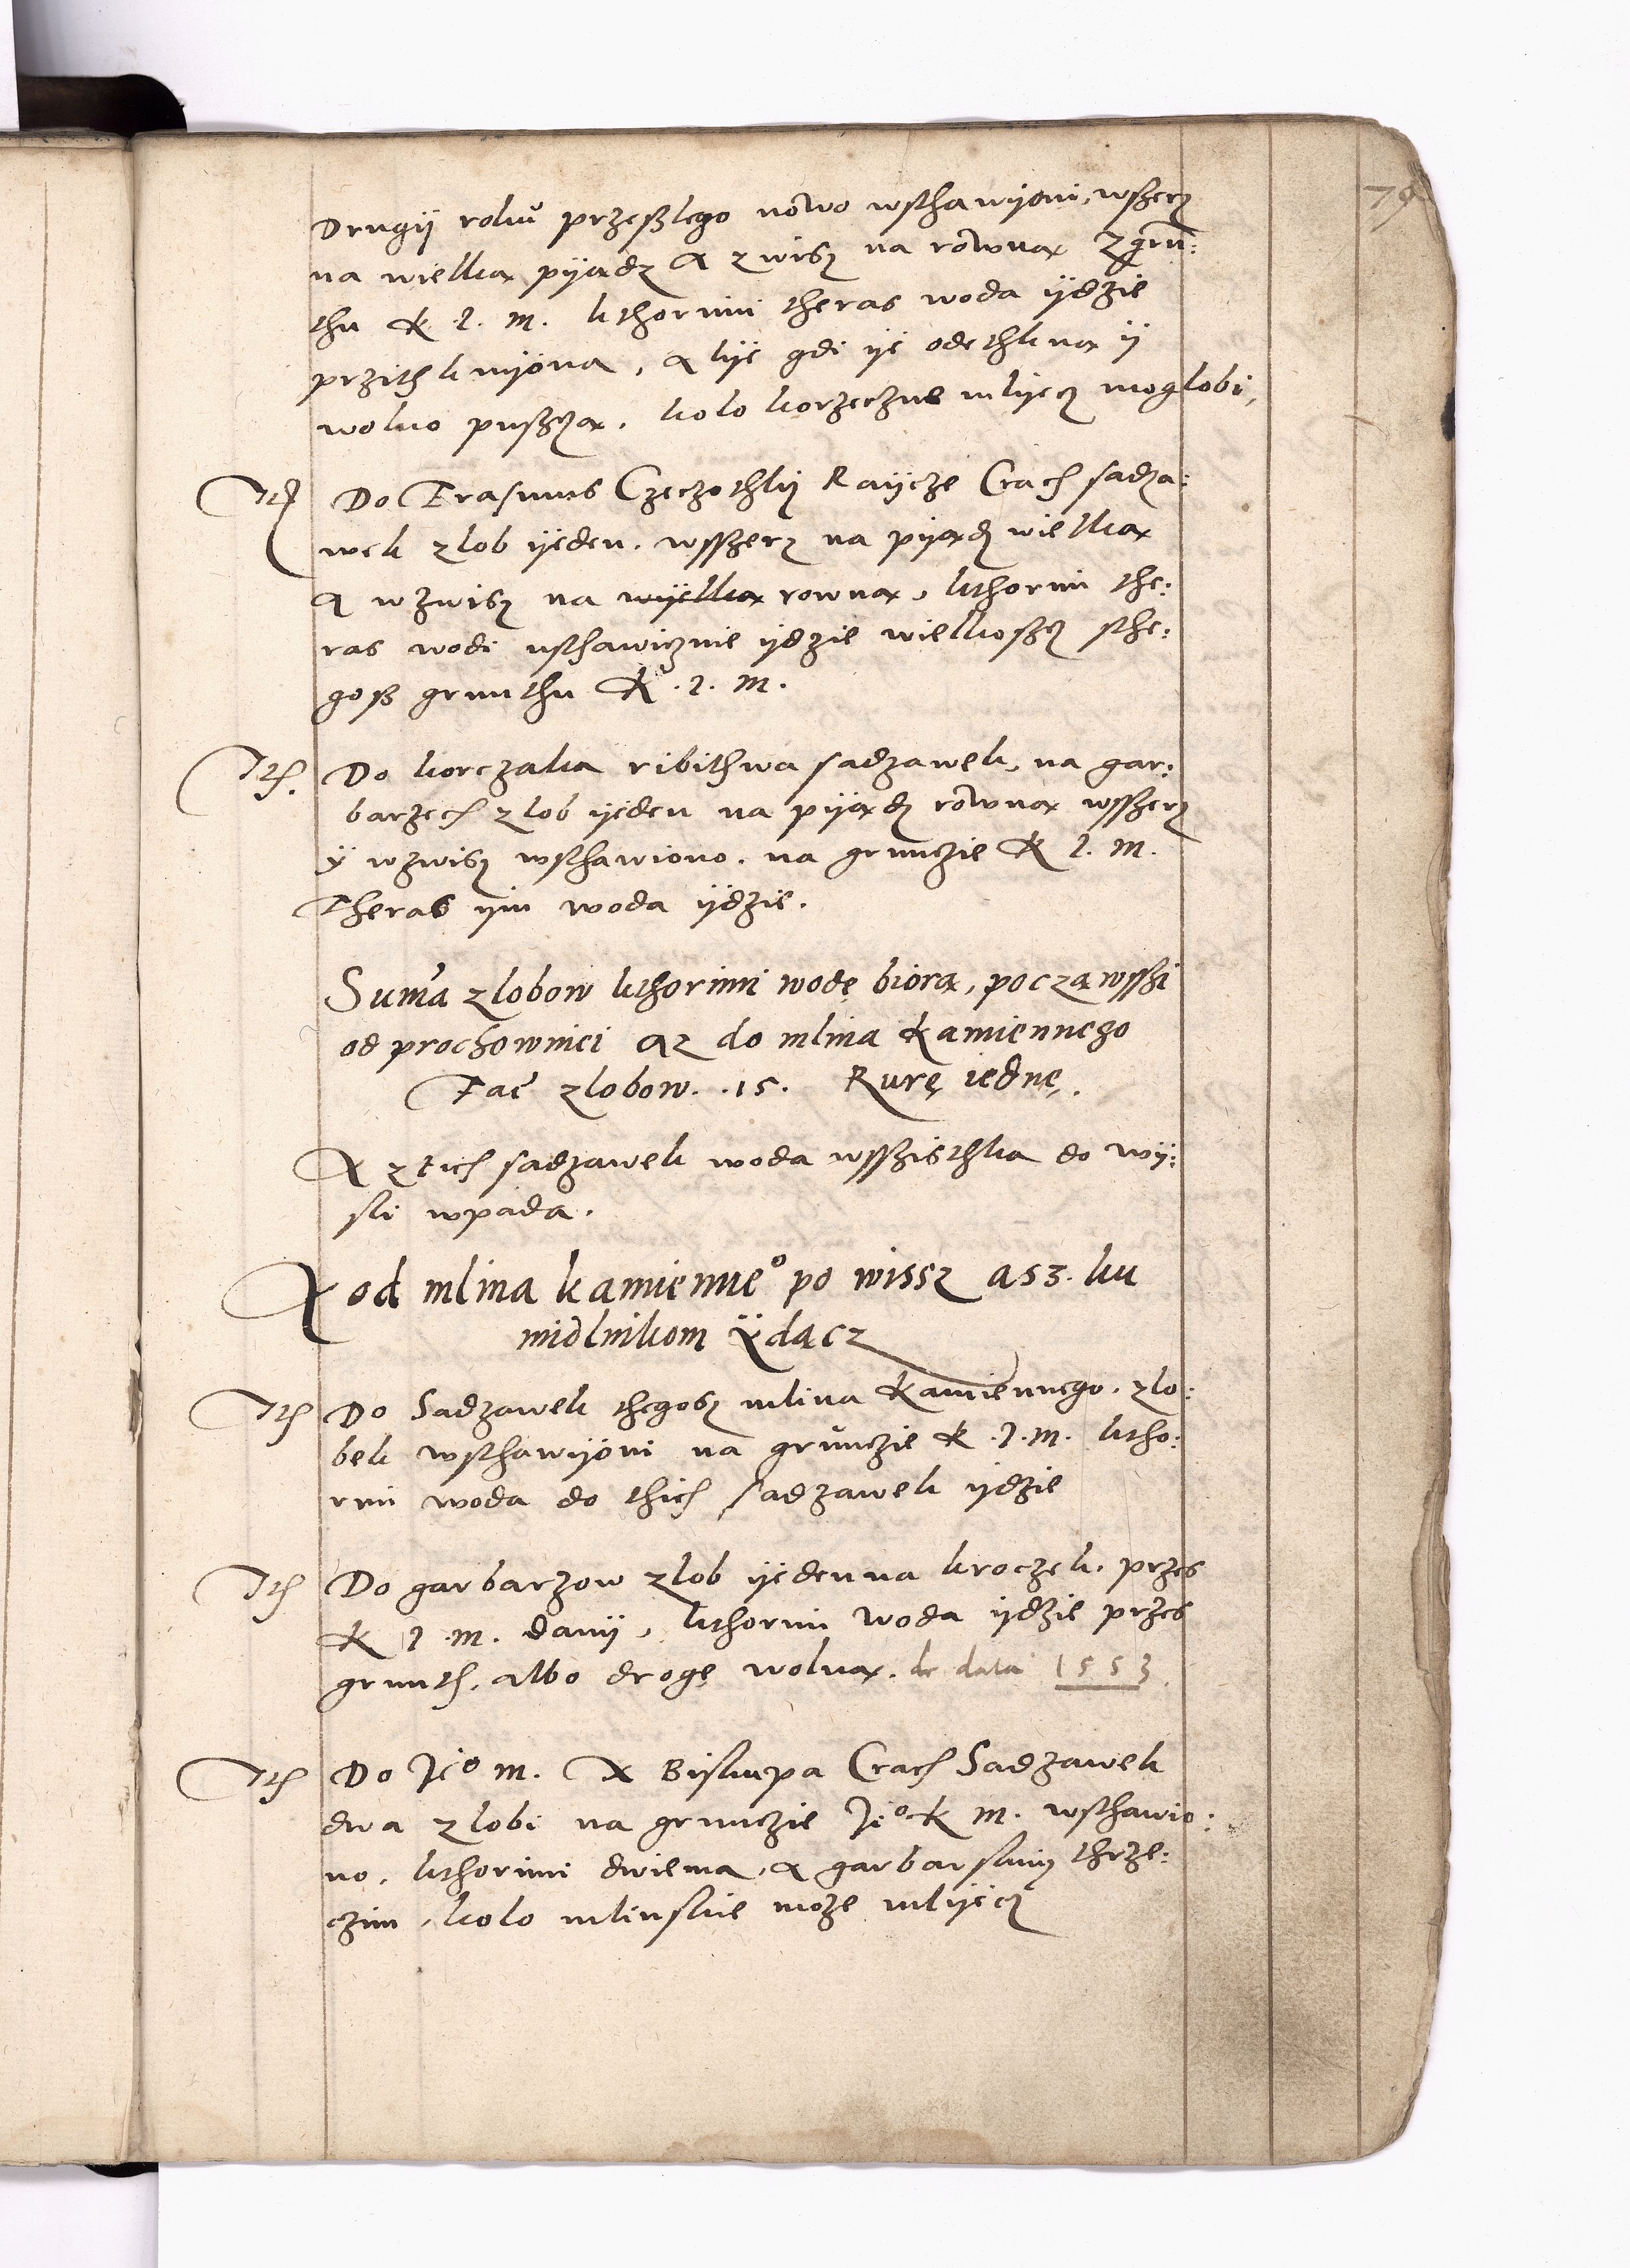 79
Drugÿ roku przeßlego nowo wsthawÿoni, wßerz
na wielka pÿadz A zwisz na rowna Z gru:
thu K. J. M. kthorimi theras woda ÿdzie
przithkniÿona, a lÿe gdi ÿe odethkna ÿ
wolno pußcza. kolo korzeczne mlÿecz moglobi,
Ith Do Erasmus Czeczothkÿ Rayÿcze Crach sadza:
wek zlob ÿeden. wsszerz na pÿadz wielka
A wzwisz na wÿelka rowna, kthorim the:
ras wodi usthawicznie ÿdzie wielkoßcz sthe:
goß grunthu K. J. M.
Ith. Do korczaka ribithwa sadzawek, na gar:
barzech zlob ÿeden na pÿadz rowna wsszerz
ÿ wzwisz wsthawiono. na grunczie K J. M.
Theras ÿm woda ÿdzie.
Suma zlobow kthorimi wodę biora, pocza wsshi
od prochownici az do mlina Kamiennego
Fac zlobow. .15. Rurę iednę.
A ztich sadzawek woda wsszisthka do wÿ:
sli wpada.
A od mlina kamienne° po wissz asz. ku
midlnikom Ÿdącz
Ith Do Sadzawek thegosz mlina Kamiennego. zlo:
bek wsthawÿoni na grunczie K. J. M. ktho:
rim woda do thich sadzawek ÿdzie
Ith Do garbarzow zlob ÿeden na kroczek. przes
K J. M. danÿ, kthorim woda ÿdzie przes
grunth. albo drogę wolna. de data 1553.
Ith Do Je° M. X Biskupa Crach Sadzawek
dwa zlobi na grunczie Je° K M. wsthawio:
no, kthorimi dwiema, a garbarskim thrze:
czim, kolo mlinskie moze mlÿecz